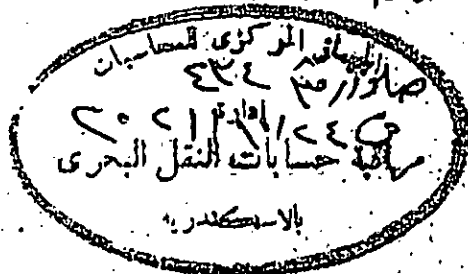 الجهاز المركزى للمحاسبات
صادر رقم ٤٣٤
إدارة
مراقبة حسابات النقل البحرى
بالاسكندريه